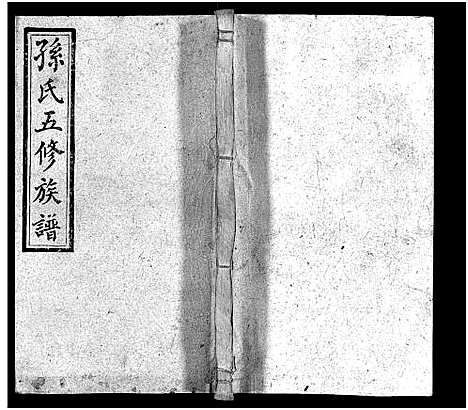 孫氏五修族譜